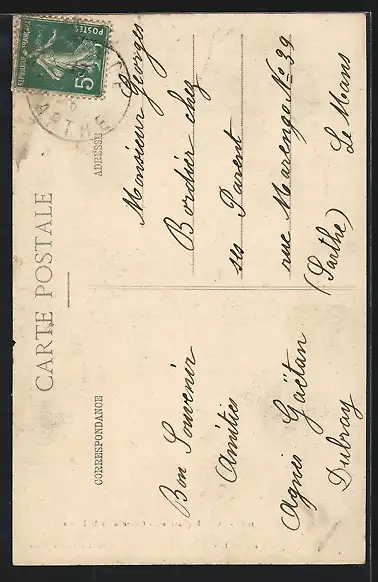 CARTE POSTALE
CORRESPONDANCE
Bon Souvenir
Amitiés
Agnès Gaëtan
Dubray
ADRESSE
Monsieur Georges
Bordier chez
ses Parent
rue Marengo No 39
(Sarthe) Le Mans
REPUBLIQUE FRANÇAISE
POSTES
5c
ARTHE